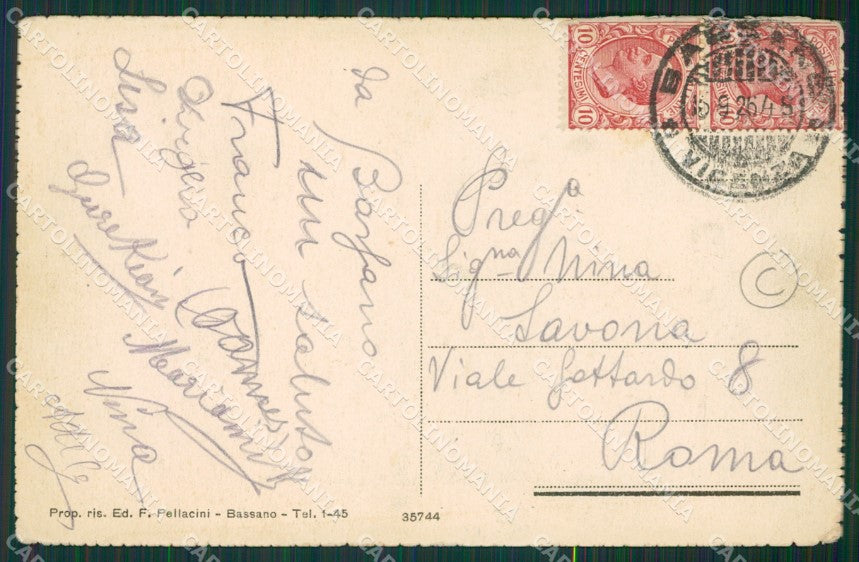 da Bassano
un saluto
Franco
Luigia
Lisa
Mariannita
Nina
Preg.a
Sig.na Nina
Savona
Viale Gottardo 8
Roma
C
10 CENTESIMI 10
BASSANO
26
VICENZA
Prop. ris. Ed. F. Pellacini - Bassano - Tel. 1-45
35744
CARTOLINOMANIA